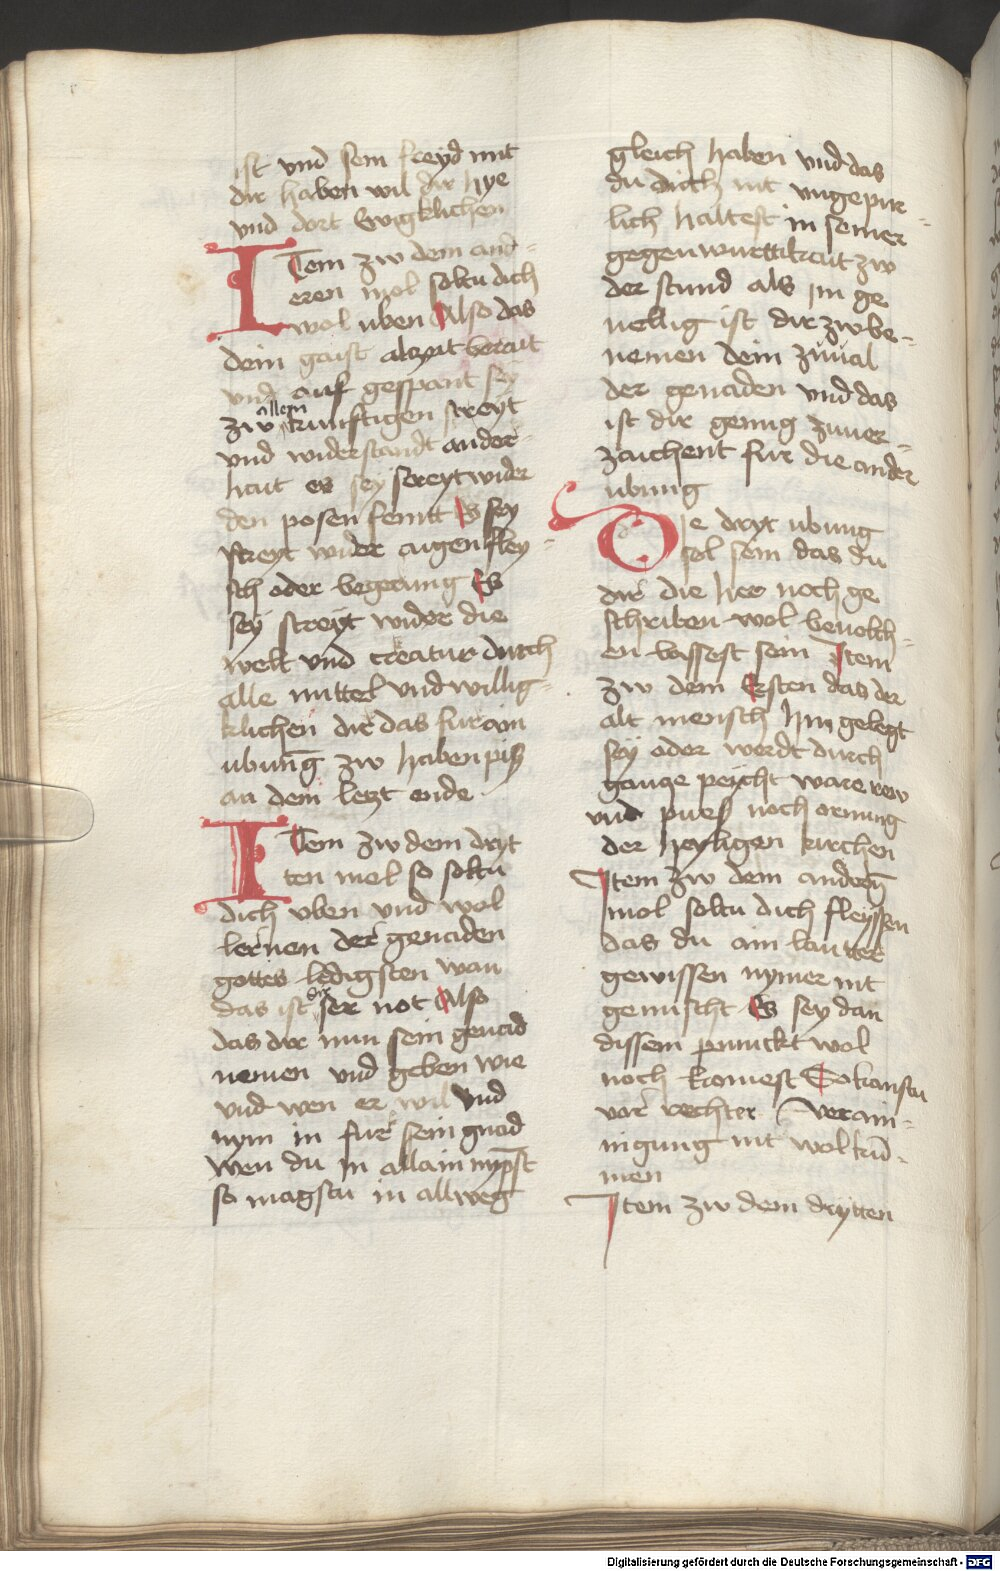 ist vnd sein freyd mit
dir haben wil dir hye
vnd dort Ewigklichen
ITem zw dem and-
eren mol soltu dich
wol uben Also das
dein gaist alzeit berait
vnd auf gespant sey
zw allem kunftigen streyt
vnd widerstandt ander-
hait es sey streyt wider
den posen feintt Es sey
streyt wider augen fley-
sch oder begerung Es
sey streyt wider die
welt vnd creatur durch
alle mittel vnd willig-
klichen dir das fur ain
ubung zw haben pis
an dem letzt ende
ITem zw dem dryt
ten mol so soltu
dich vben vnd wol
lernen der genaden
gottes ledigsten wan
das ist dir ser not Also
das dir nun sein genad
nemen vnd geben wie
vnd wen er wil vnd
nym in fur sein gnad
wen du in allain nympst
so magstu in allweg
gleich haben vnd das
du dich nit vngepur-
lich haltest in seiner
gegenwurttikait zw
der stund als im ge
uellig ist dir zw be-
nemen dein zuual
der genaden vnd das
ist dir genug zuuer-
zaichent fur die ander
ubung
Die dryt ubung
sol sein das du
dir die her noch ge
schriben wol beuolch-
en lassest sein Item
zw dem Ersten das der
alt mensch hin gelegt
sey oder werdt durch
gantze peycht ware rew
vnd pues noch ornung
der heyligen kirchen
Item zw dem anderen
mol soltu dich fleyssen
das du ain lautter
gewissen nymer nit
gemischt Es sey dan
dissem punckt wol
noch komest So kanstu
vor rechter verain-
nigung nit wol kum-
men
Item zw dem drytten
Digitalisierung gefördert durch die Deutsche Forschungsgemeinschaft - DFG